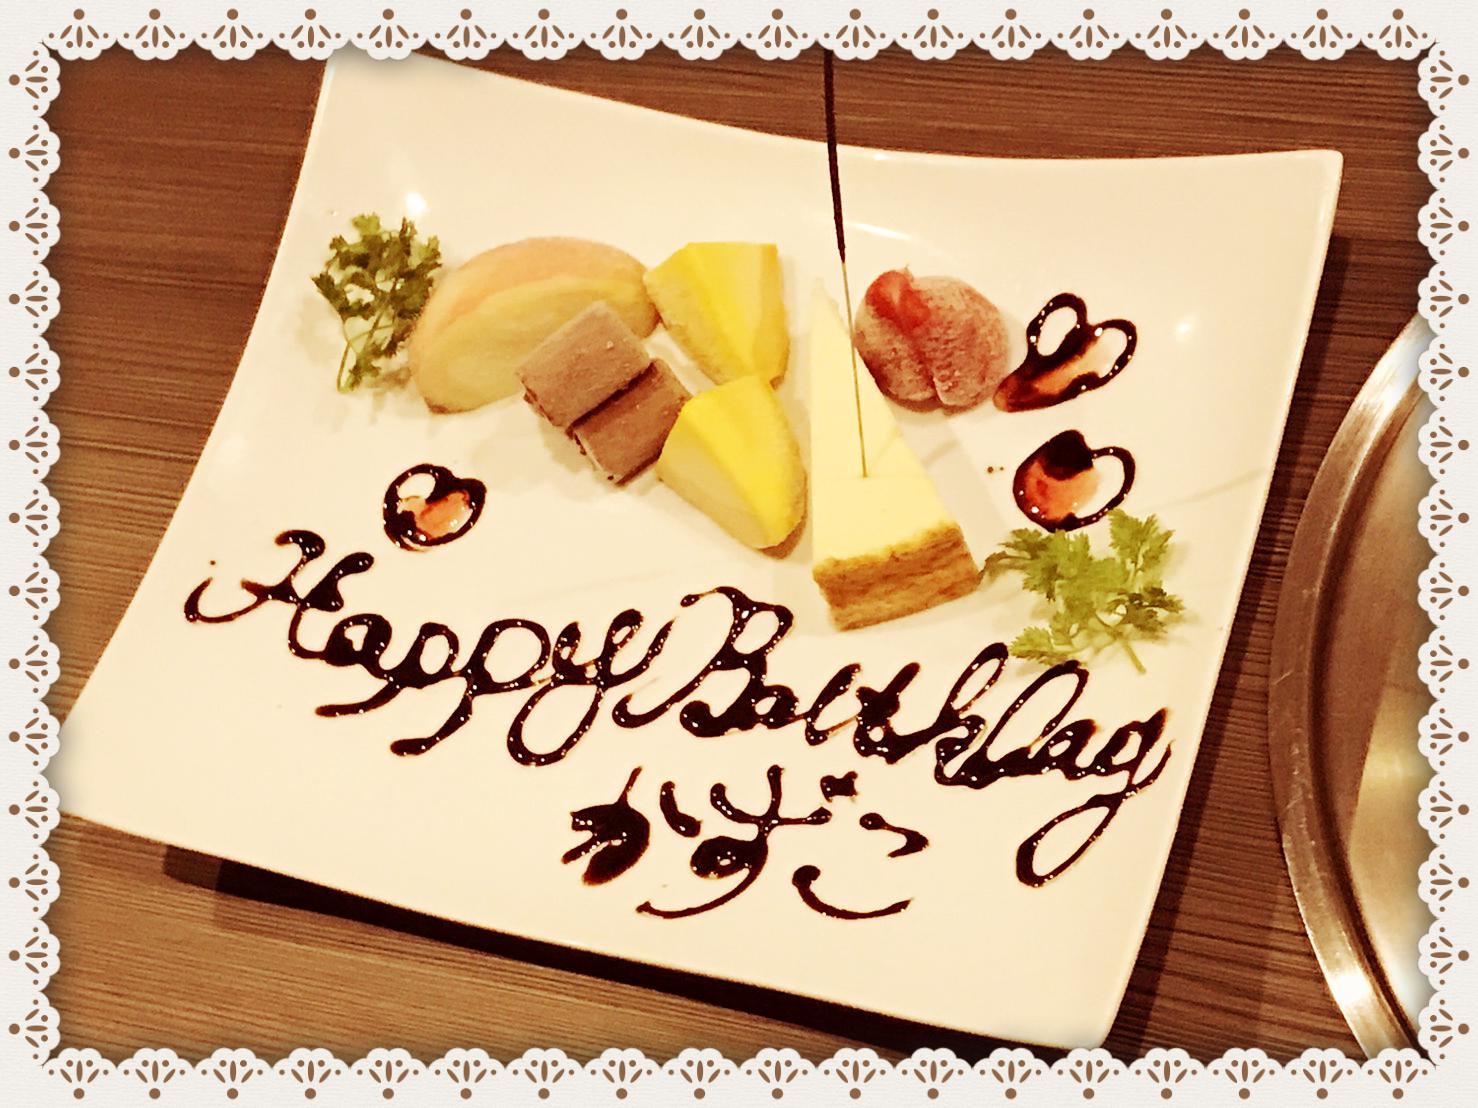 Happy BirthDay
かずこ